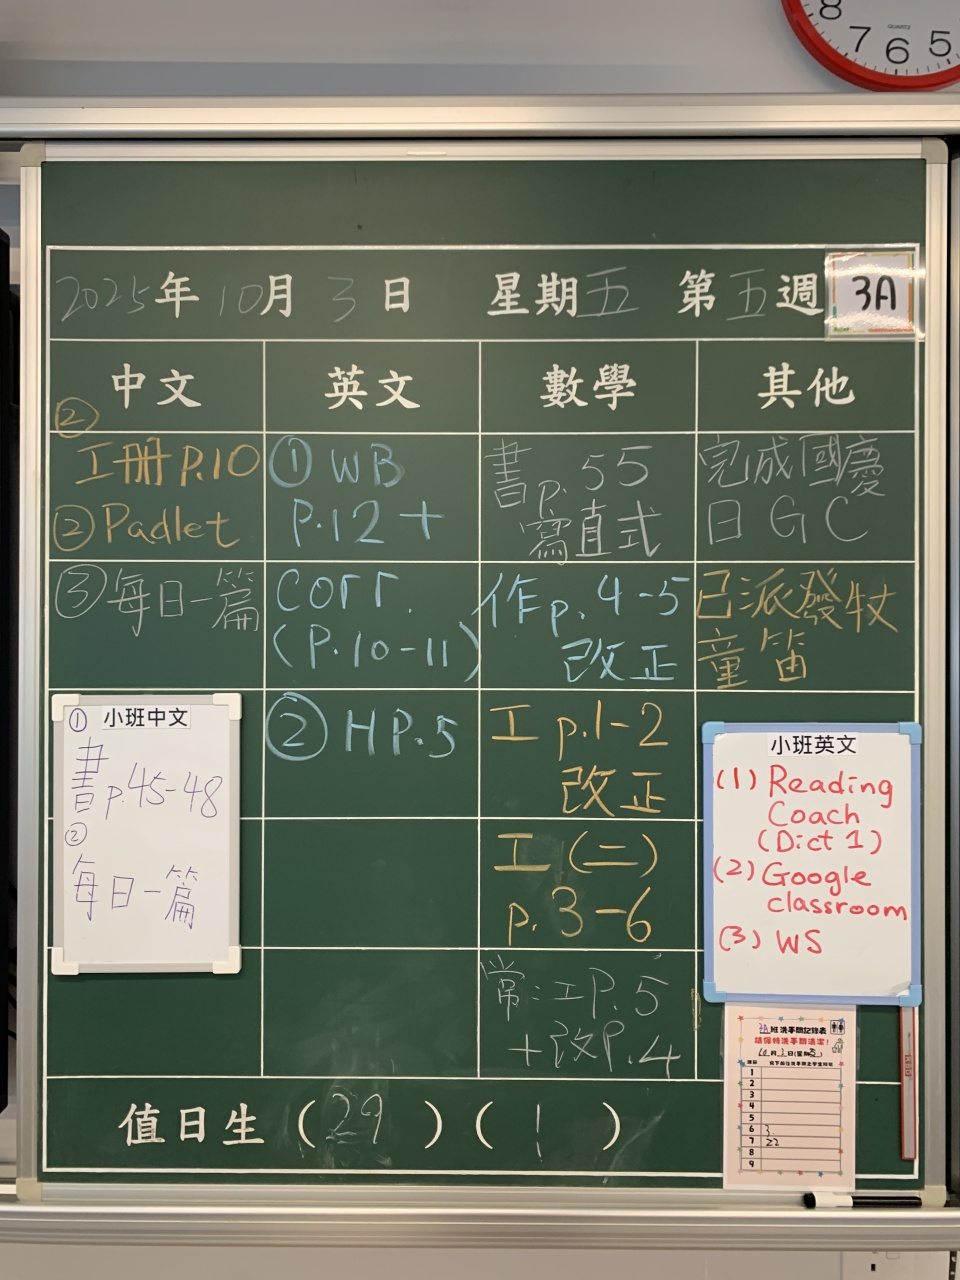 8 7 6 5
QUARTZ
2025年10月3日 星期五 第五週 3A
中文 英文 數學 其他
②
工冊 P.10
② Padlet
③ 每日一篇
小班中文
①
書 p.45-48
②
每日一篇
① WB
P.12 +
corr.
(P.10-11)
② HP.5
書 p. 55
寫直式
作 p. 4-5
改正
工 p.1-2
改正
工(二)
p. 3-6
常:工P.5
+改P.4
完成國慶
日 GC
已派發牧
童笛
小班英文
(1) Reading
Coach
(Dict 1)
(2) Google
classroom
(3) WS
3A班洗手間記錄表
請保持洗手間清潔!
10月3日(星期五)
1
2
3
4
5
6 3.
7 22
8
9
值日生 (29) (1)